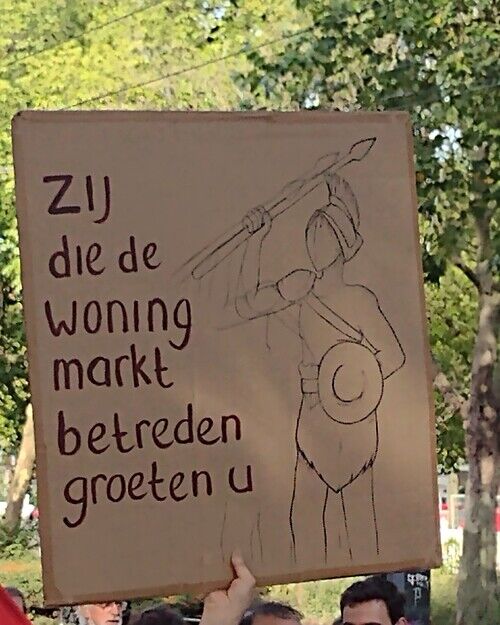 ZIJ
die de
woning
markt
betreden
groeten u